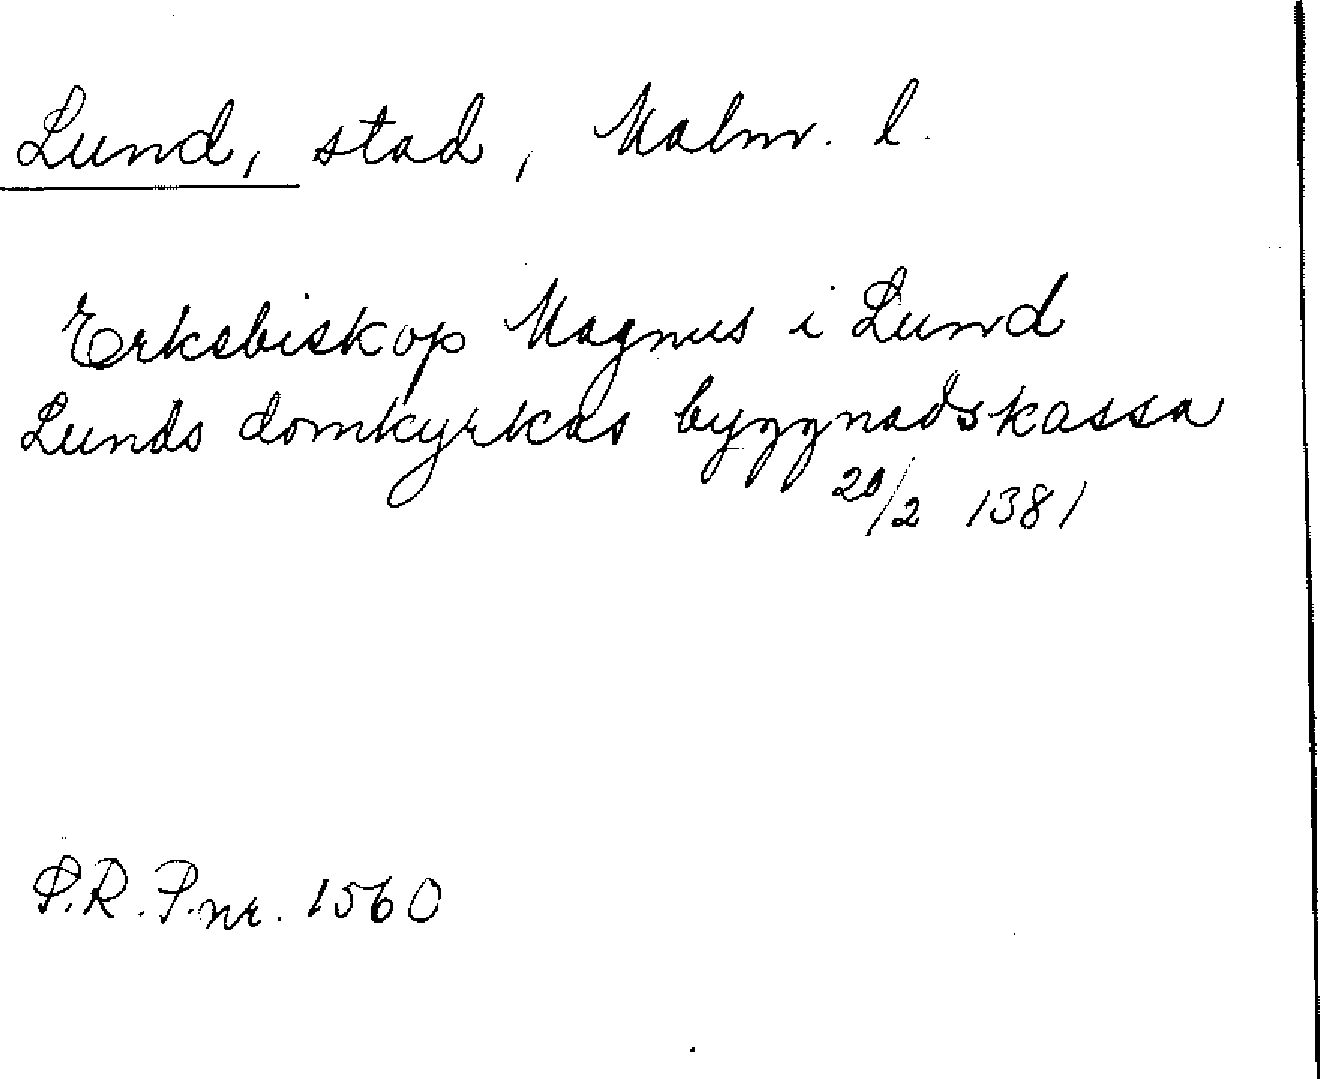 Lund, stad, Malm. l.
Erkebiskop Magnus i Lund
Lunds domkyrkas byggnadskassa
20/2 1381
P.R.P.nr. 1560